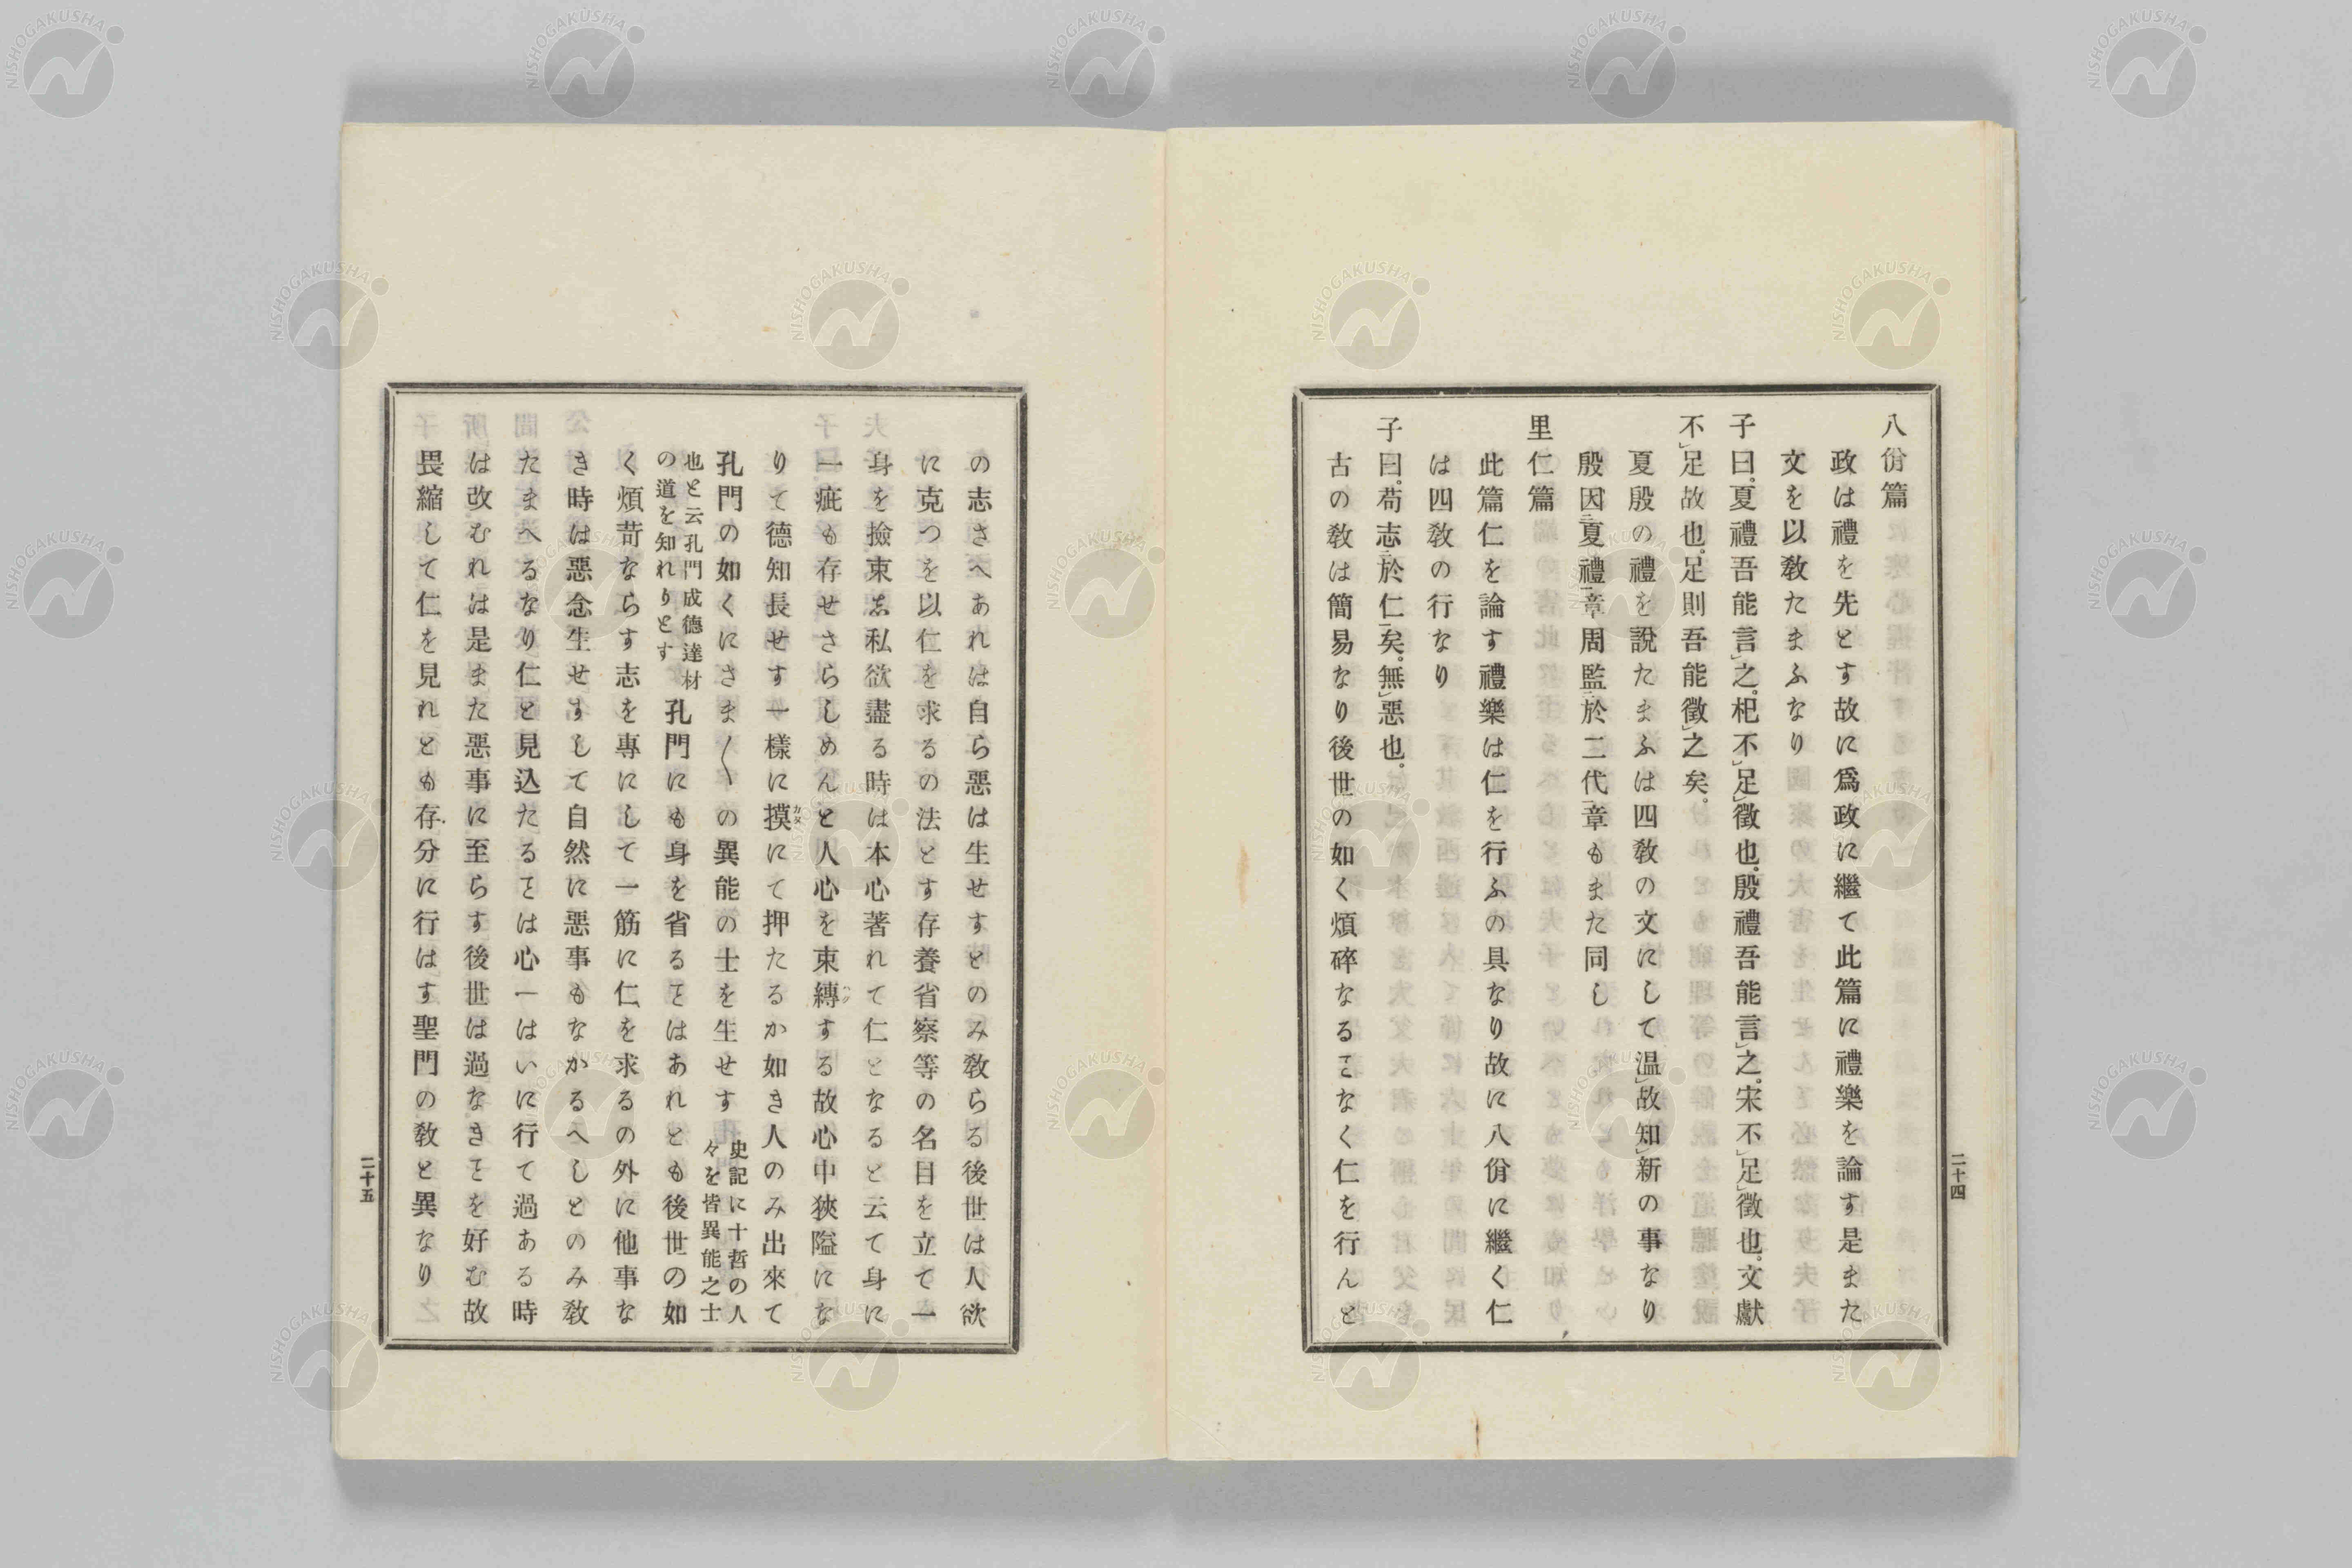 八佾篇
政は禮を先とす故に爲政に繼て此篇に禮樂を論す是また
文を以敎たまふなり
子曰。夏禮吾能言之。杞不足徵也。殷禮吾能言之。宋不足徵也。文獻
不足故也。足則吾能徵之矣。
夏殷の禮を說たまふは四敎の文にして温故知新の事なり
殷因夏禮章周監於二代章もまた同し
里仁篇
此篇仁を論す禮樂は仁を行ふの具なり故に八佾に繼く仁
は四敎の行なり
子曰。苟志於仁矣。無惡也。
古の敎は簡易なり後世の如く煩碎なるヿなく仁を行んと
二十四
の志さへあれは自ら惡は生せすとのみ敎らる後世は人欲
に克つを以仁を求るの法とす存養省察等の名目を立て一
身を撿束し私欲盡る時は本心著れて仁となると云て身に
一疵も存せさらしめんと人心を束縛する故心中狹隘にな
りて德知長せす一樣に摸にて押たるか如き人のみ出來て
孔門の如くにさま〱の異能の士を生せす史記に十哲の人々を皆異能之士
也と云孔門成德達材の道を知れりとす孔門にも身を省るヿはあれとも後世の如
く煩苛ならす志を專にして一筋に仁を求るの外に他事な
き時は惡念生せすして自然に惡事もなかるへしとのみ敎
たまへるなり仁と見込たるヿは心一はいに行て過ある時
は改むれは是また惡事に至らす後世は過なきヿを好む故
畏縮して仁を見れとも存分に行はす聖門の敎と異なり
二十五
NISHOGAKUSHA